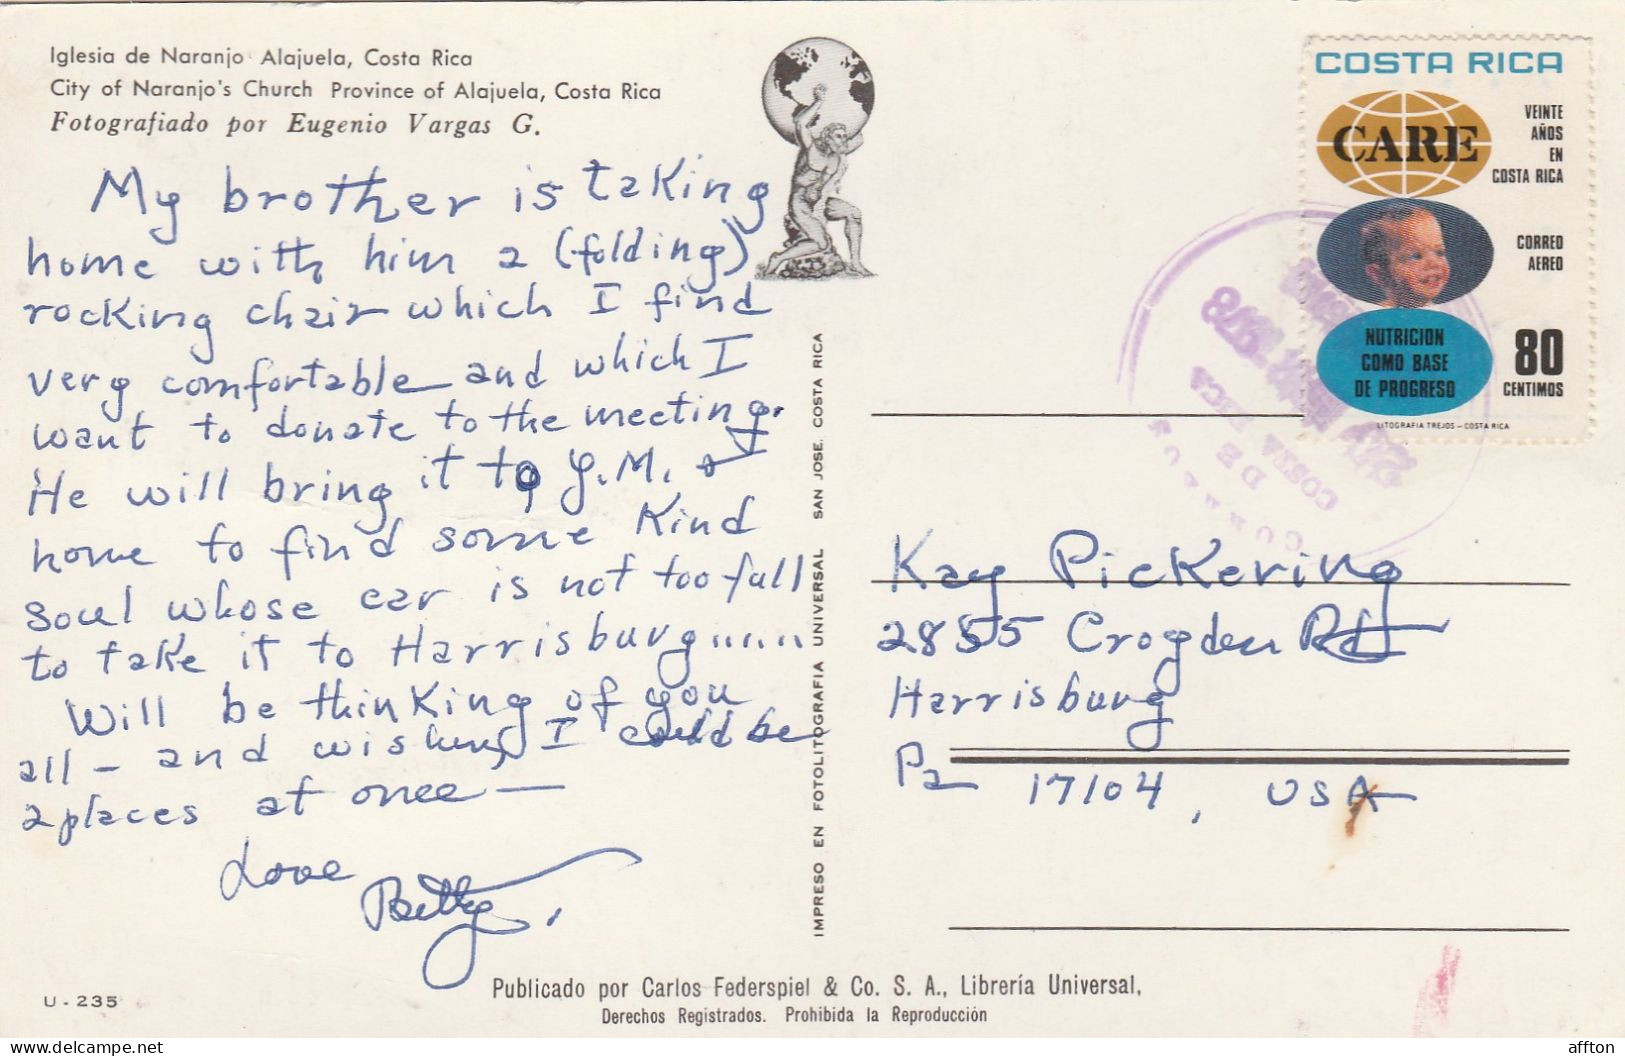 Iglesia de Naranjo Alajuela, Costa Rica
City of Naranjo's Church Province of Alajuela, Costa Rica
Fotografiado por Eugenio Vargas G.
My brother is taking
home with him a (folding)
rocking chair which I find
very comfortable and which I
want to donate to the meeting.
He will bring it to Y.M. &
home to find some kind
soul whose car is not too full
to take it to Harrisburg.....
Will be thinking of you
all - and wishing I could be
2 places at once -
Love
Betty.
U - 235
Publicado por Carlos Federspiel & Co. S. A., Librería Universal,
Derechos Registrados. Prohibida la Reproducción
IMPRESO EN FOTOLITOGRAFIA UNIVERSAL SAN JOSE. COSTA RICA
COSTA RICA
CARE
VEINTE
AÑOS
EN
COSTA RICA
CORREO
AEREO
NUTRICION
COMO BASE
DE PROGRESO
80
CENTIMOS
LITOGRAFIA TREJOS - COSTA RICA
1978
DE
COSTA RICA
Kay Pickering
2855 Crogden Rd
Harrisburg
Pa 17104, USA
affton